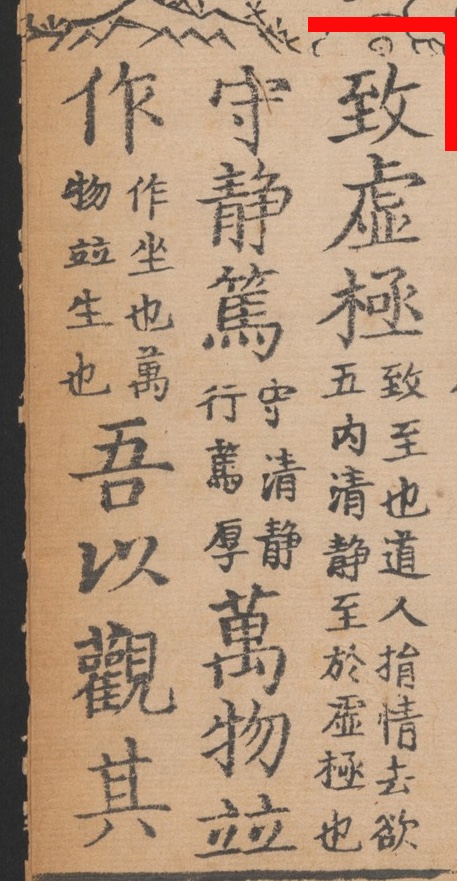 致虛極致至也道人捐情去欲五内清静至於虛極也
守静篤守清静行篤厚萬物並
作作坐也萬物並生也吾以觀其